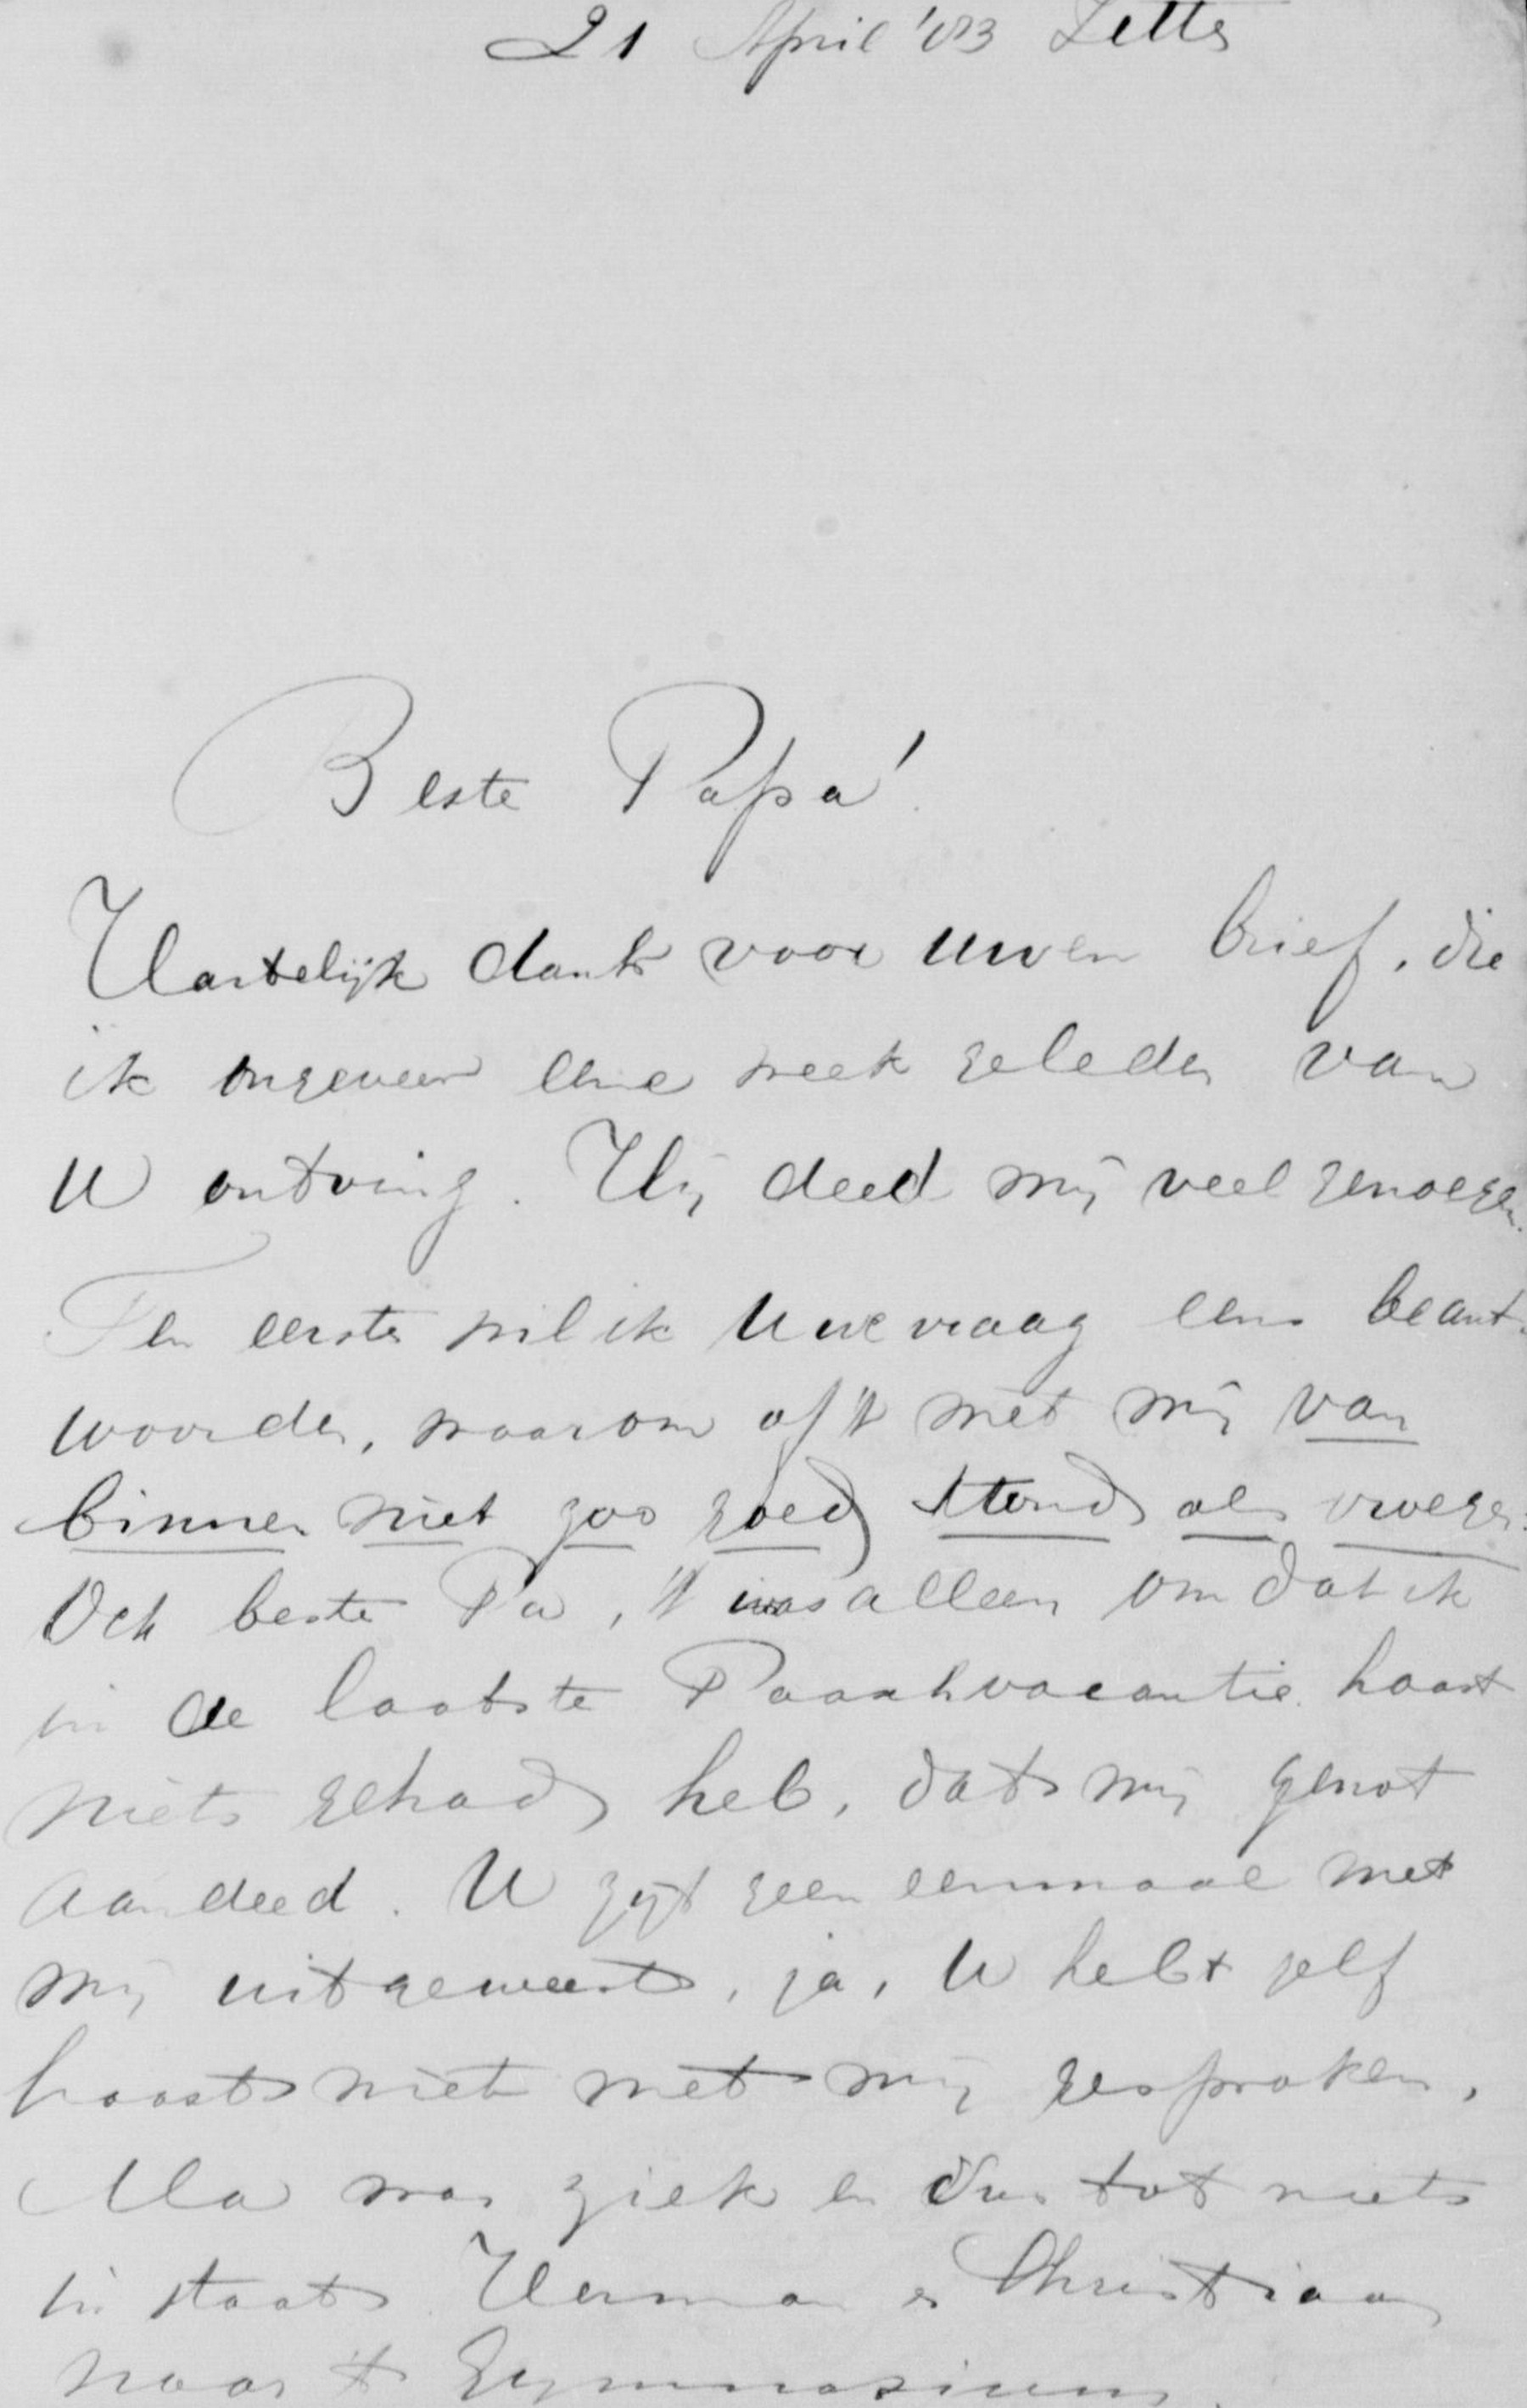 21 April '83 Zetten
Beste Papa!
Hartelijk dank voor uwen brief, die
ik ongeveer eene week geleden van
U ontving. Hij deed mij veel genoegen.
Ten eerste wil ik Uwe vraag eens beant-
woorden, waarom of 't met mij van
binnen niet zoo goed stond als vroeger.
Och beste Pa, 't was alleen omdat ik
in de laatste Paaschvacantie haast
niets gehad heb, dat mij genot
aandeed. U zijt geen eenmaal met
mij uitgeweest, ja, U hebt zelf
haast niet met mij gesproken,
Ma was ziek en dus tot niets
in staat. Herman en Christiaan
naar 't Gymnasium.